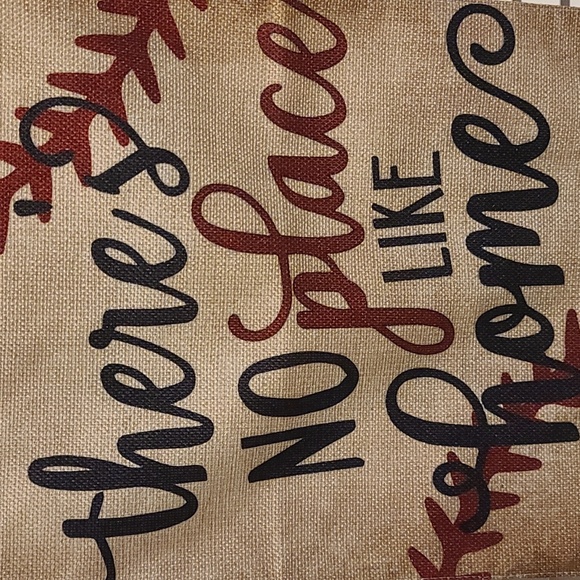 there's
NO place
LIKE
home